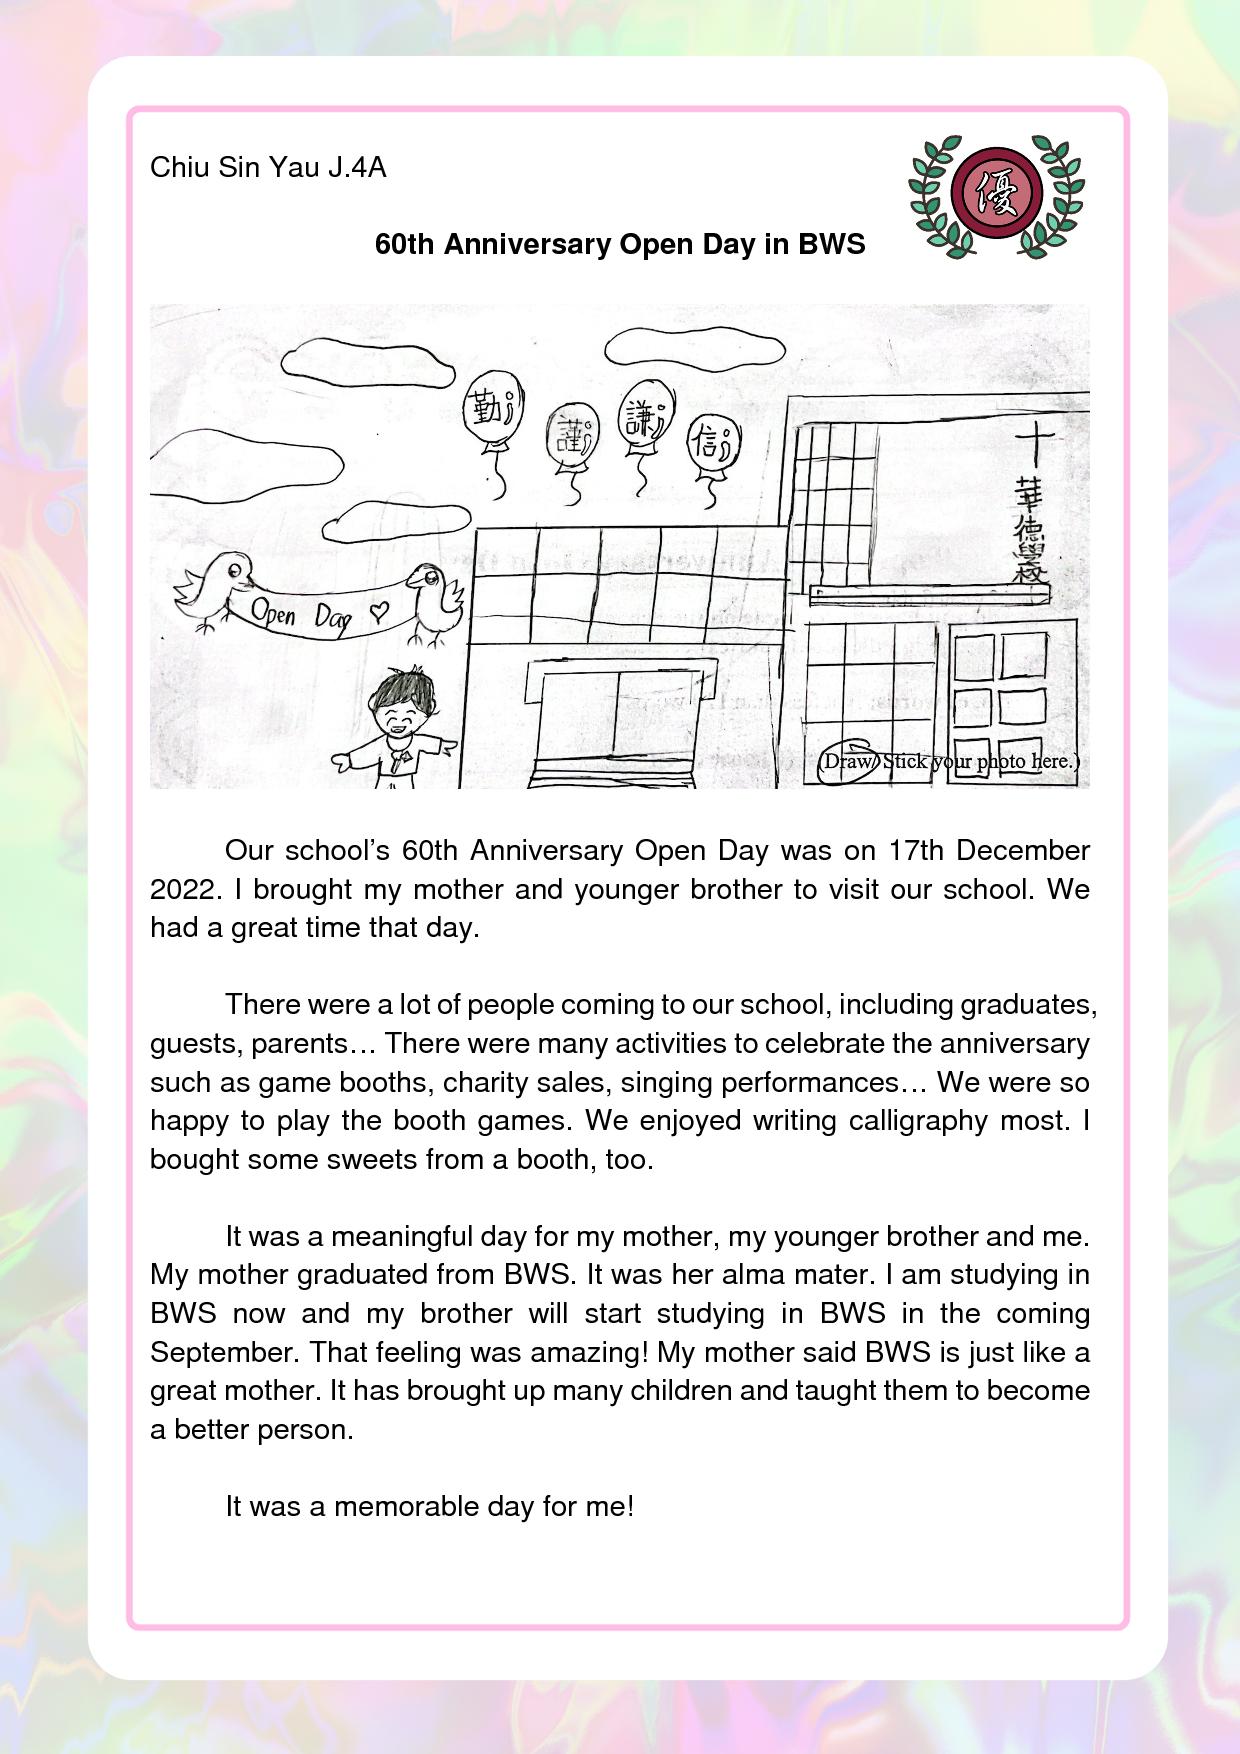 Chiu Sin Yau J.4A
優
60th Anniversary Open Day in BWS
勤
謹
謙
信
十
華
德
學
校
Open Day
(Draw/ Stick your photo here.)
Our school’s 60th Anniversary Open Day was on 17th December
2022. I brought my mother and younger brother to visit our school. We
had a great time that day.
There were a lot of people coming to our school, including graduates,
guests, parents… There were many activities to celebrate the anniversary
such as game booths, charity sales, singing performances… We were so
happy to play the booth games. We enjoyed writing calligraphy most. I
bought some sweets from a booth, too.
It was a meaningful day for my mother, my younger brother and me.
My mother graduated from BWS. It was her alma mater. I am studying in
BWS now and my brother will start studying in BWS in the coming
September. That feeling was amazing! My mother said BWS is just like a
great mother. It has brought up many children and taught them to become
a better person.
It was a memorable day for me!